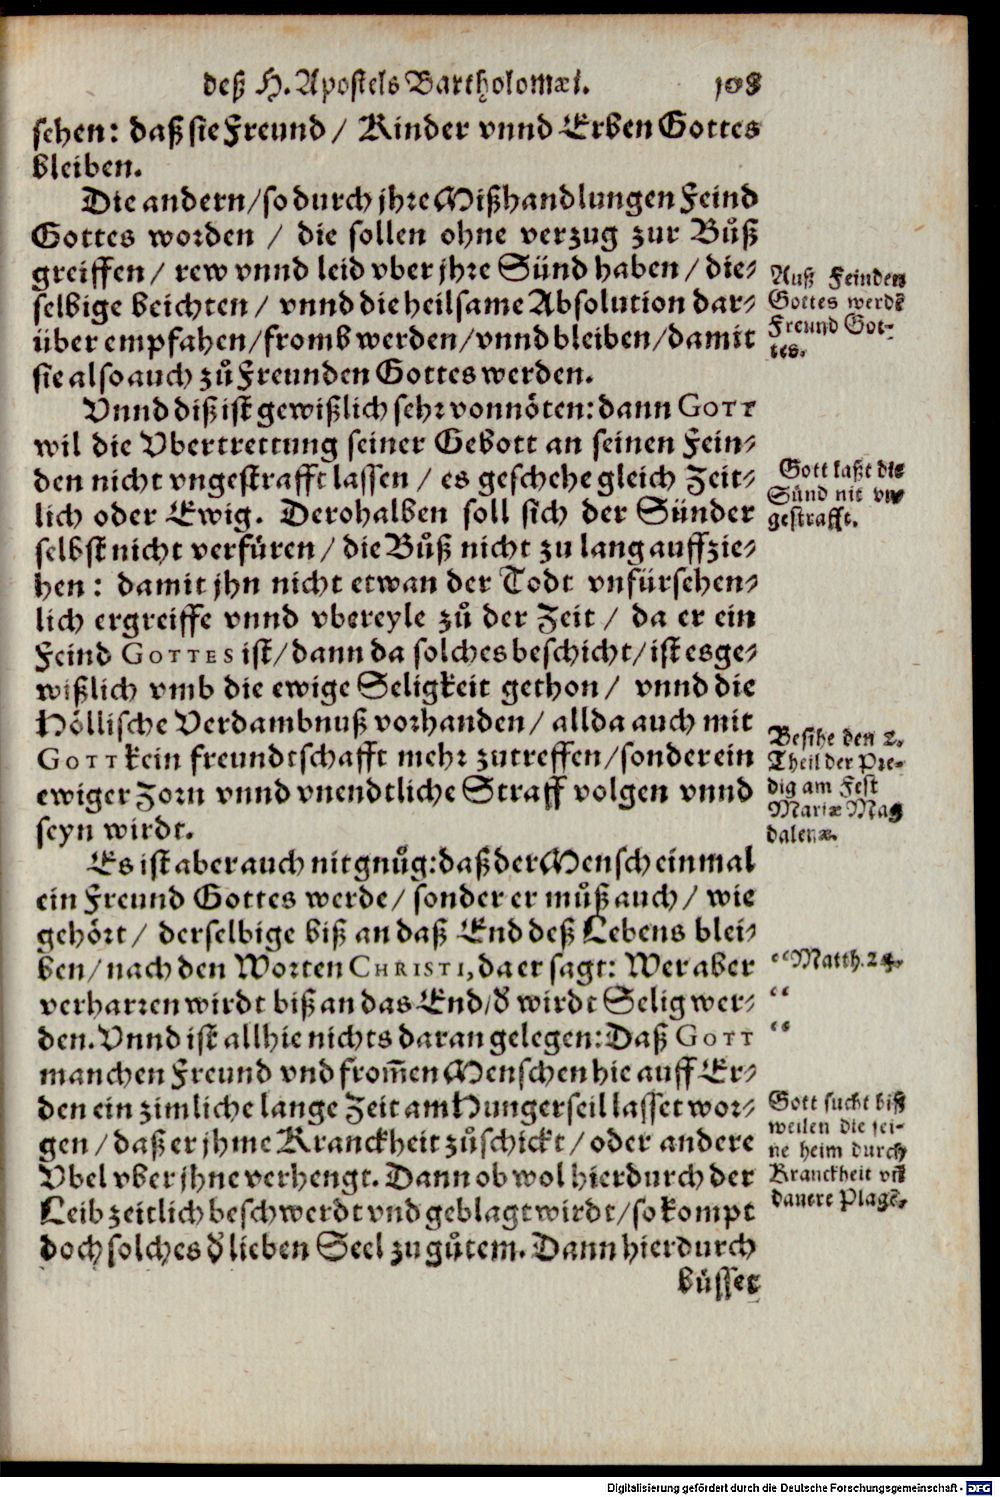 deß H. Apostels Bartholomæi. 108
sehen: daß sie Freund / Kinder vnnd Erben Gottes
bleiben.
Die andern / so durch jhre Mißhandlungen Feind
Gottes worden / die sollen ohne verzug zur Bůß
greiffen / rew vnnd leid vber jhre Sünd haben / die⸗
selbige beichten / vnnd die heilsame Absolution dar⸗
über empfahen / fromb werden / vnnd bleiben / damit
sie also auch zů Freunden Gottes werden.
Auß Feinden
Gottes werdẽ
Freund Got⸗
tes.
Vnnd diß ist gewißlich sehr vonnöten: dann GOTT
wil die Vbertrettung seiner Gebott an seinen Fein⸗
den nicht vngestrafft lassen / es geschehe gleich Zeit⸗
lich oder Ewig. Derohalben soll sich der Sünder
selbst nicht verfüren / die Bůß nicht zu lang auffzie⸗
hen: damit jhn nicht etwan der Todt vnfürsehen⸗
lich ergreiffe vnnd vbereyle zů der Zeit / da er ein
Feind GOTTES ist / dann da solches beschicht / ist es ge⸗
wißlich vmb die ewige Seligkeit gethon / vnnd die
Höllische Verdambnuß vorhanden / allda auch mit
GOTT kein freundtschafft mehr zutreffen / sonder ein
ewiger Zorn vnnd vnendtliche Straff volgen vnnd
seyn wirdt.
Gott laßt die
Sünd nit vn⸗
gestrafft.
Besihe den 2.
Theil der Pre⸗
dig am Fest
Mariæ Mag
dalenæ.
Es ist aber auch nit gnůg: daß der Mensch einmal
ein Freund Gottes werde / sonder er můß auch / wie
gehört / derselbige biß an daß End deß Lebens blei⸗
ben / nach den Worten CHRISTI, da er sagt: Wer aber
verharren wirdt biß an das End / d' wirdt Selig wer⸗
den. Vnnd ist allhie nichts daran gelegen: Daß GOTT
manchen Freund vnd from̃en Menschen hie auff Er⸗
den ein zimliche lange Zeit am Hungerseil lasset wor⸗
gen / daß er jhme Kranckheit zůschickt / oder andere
Vbel vber jhne verhengt. Dann ob wol hierdurch der
Leib zeitlich beschwerdt vnd geblagt wirdt / so kompt
doch solches d' lieben Seel zu gůtem. Dann hierdurch
“Matth. 24.
“
“
Gott sucht biß
weilen die sei⸗
ne heim durch
Kranckheit vñ
dauere Plagẽ.
büsset
Digitalisierung gefördert durch die Deutsche Forschungsgemeinschaft - DFG